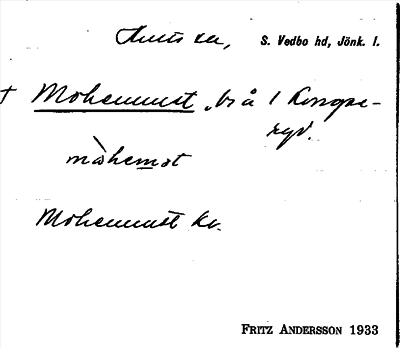 S. Vedbo hd, Jönk. l.
† Mohemmet, bs å 1 Kongse-
ryd.
måhemot
Mohemmet kv.
FRITZ ANDERSSON 1933